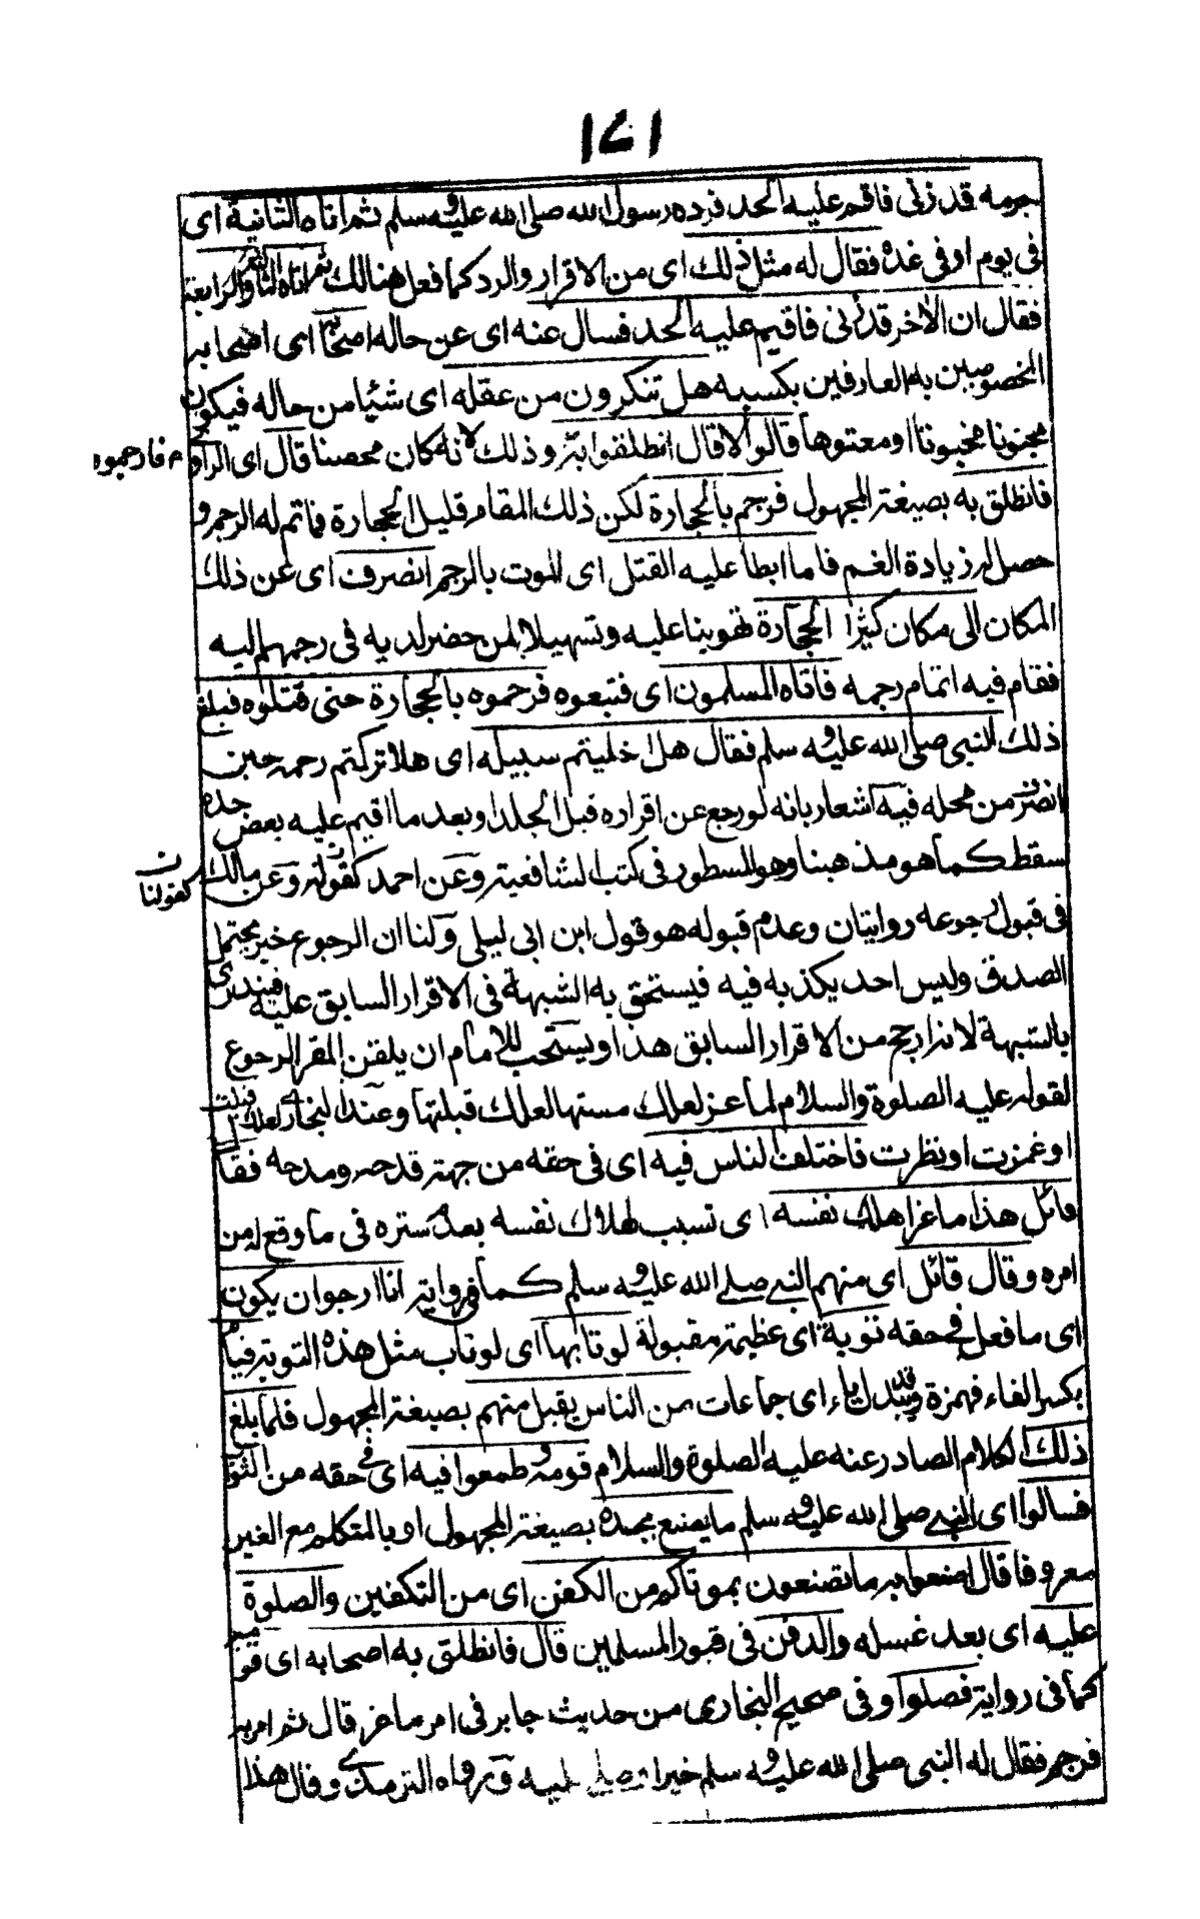 ١٤١
جرمه قد زنى فاقم عليه الحد فرده رسول الله صلى الله عليه وسلم ثم اتاه الثانية اى
فى يوم او فى غده فقال له مثل ذلك اى من الاقرار والرد كما فعل هنالك ثم اتاه الثالثة والرابعة
فقال ان الاخر قد زنى فاقيم عليه الحد فسال عنه اى عن حاله اصحابه اى اصحابه
المخصوصين به العارفين بكسبه هل تنكرون من عقله اى شئيا من حاله فيكون
مجنونا مخبونا او معتوها قالوا لا قال انطلقوا به وذلك لانه كان محصنا قال اى الراوى م فارجموه
فانطلق به بصيغة المجهول فرجم بالحجارة لكن ذلك المقام قليل الحجارة فاتم له الرجم و
حصل له زيادة الغم فاما ابطا عليه القتل اى الموت بالرجم انصرف اى عن ذلك
المكان الى مكان كثير الحجارة تهوينا عليه وتسهيلا لمن حضر لديه فى رجمهم اليه
فقام فيه اتمام رجمه فاتاه المسلمون اى فتبعوه فرجموه بالحجارة حتى قتلوه فبلغ
ذلك النبى صلى الله عليه وسلم فقال هلا خليتم سبيله اى هلا تركتم رجمه حين
انصرف من محله فيه اشعار بانه لو رجع عن اقراره قبل الجلد او بعد ما اقيم عليه بعض حده
سقط كما هو مذهبنا وهو المسطور فى كتب الشافعية وعن احمد كقوله وعن مالك كقولنا
فى قبول رجوعه روايتان وعدم قبوله هو قول ابن ابى ليلى ولنا ان الرجوع خبر يحتمل
الصدق وليس احد يكذبه فيه فيستحق به الشبهة فى الاقرار السابق عليه فيندرى
بالشبهة لانه ارجح من الاقرار السابق هذا ويستحب للامام ان يلقن المقر الرجوع
لقوله عليه الصلوة والسلام لما عز لعلك مستها لعلك قبلتها وعند البخارى لعلك قبلت
او غمزت او نظرت فاختلف الناس فيه اى فى حقه من جهة قدحه ومدحه فقال
قائل هذا ماعز اهلك نفسه اى تسبب لهلاك نفسه بعد ستره فى ما وقع له من
امره وقال قائل اى منهم النبى صلى الله عليه وسلم كما فى رواية انا ارجو ان يكون
اى ما فعل فى حقه توبة اى عظيمة مقبولة لو تابها اى لو تاب مثل هذه التوبة فيام
بكسر الفاء فهمزة وقد يبدل ياء اى جماعات من الناس يقبل منهم بصيغة المجهول فلما بلغ
ذلك الكلام الصادر عنه عليه الصلوة والسلام قومه وطمعوا فيه اى فى حقه من
فسالوا اى النبى صلى الله عليه وسلم ما يصنع بجسده بصيغة المجهول او بالمتكلم مع الغير
معروفا قال اصنعوا به ما تصنعون بموتاكم من الكفن اى من التكفين والصلوة
عليه اى بعد غسله والدفن فى قبور المسلمين قال فانطلق به اصحابه اى قومه
كما فى رواية فصلوا وفى صحيح البخارى من حديث جابر فى امر ماعز قال ثم امر به
فرجم فقال له النبى صلى الله عليه وسلم خيرا وصلى عليه ورواه الترمذى وقال هذا